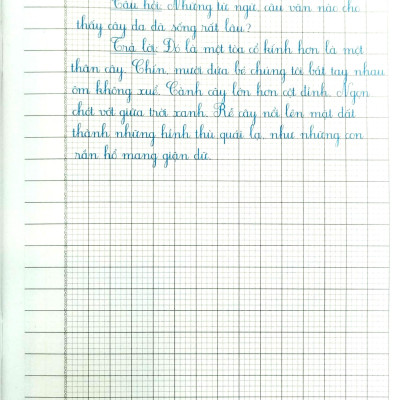 Câu hỏi: Những từ ngữ, câu văn nào cho
thấy cây đa đã sống rất lâu?
Trả lời: Đó là một toà cổ kính hơn là một
thân cây. Chín, mười đứa bé chúng tôi bắt tay nhau
ôm không xuể. Cành cây lớn hơn cột đình. Ngọn
chót vót giữa trời xanh. Rễ cây nổi lên mặt đất
thành những hình thù quái lạ, như những con
rắn hổ mang giận dữ.